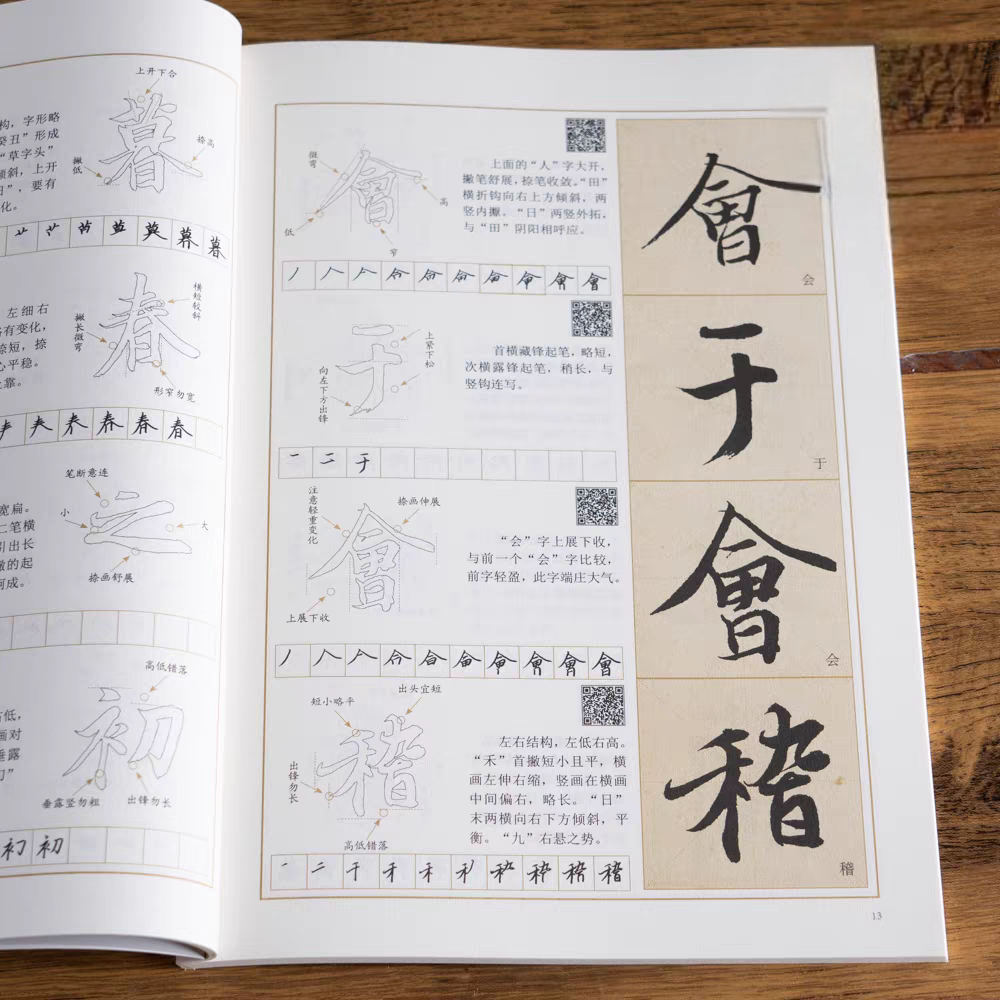 上开下合
暮
捺高
撇低
构，字形略
癸丑”形成
“草字头”
倾斜，上开
日”，要有
化。
暮
横短较斜
春
撇长微弯
形窄勿宽
左细右
略有变化，
捺短，捺
心平稳。
靠。
春
笔断意连
小
之
大
捺画舒展
宽扁。
二笔横
引出长
撇的起
呵成。
高低错落
初
垂露竖勿粗
出锋勿长
低，
画对
垂露
刀”
初
微弯
會
高
低
窄
上面的“人”字大开，
撇笔舒展，捺笔收敛。“田”
横折钩向右上方倾斜，两
竖内擫。“日”两竖外拓，
与“田”阴阳相呼应。
會
會
会
上紧下松
于
向左下方出锋
首横藏锋起笔，略短，
次横露锋起笔，稍长，与
竖钩连写。
一 二 于
于
于
注意轻重变化
捺画伸展
會
上展下收
“会”字上展下收，
与前一个“会”字比较，
前字轻盈，此字端庄大气。
會
會
会
出头宜短
短小略平
稽
出锋勿长
高低错落
左右结构，左低右高。
“禾”首撇短小且平，横
画左伸右缩，竖画在横画
中间偏右，略长。“日”
末两横向右下方倾斜，平
衡。“九”右悬之势。
稽
稽
稽
13